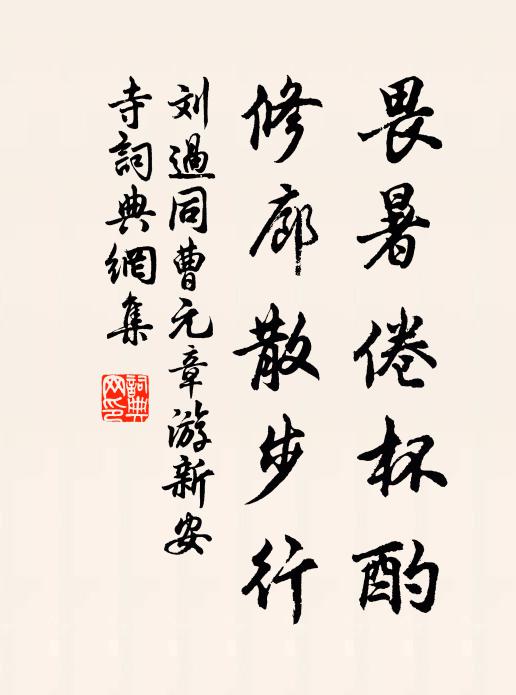 畏暑倦杯酌
修廊散步行
刘過同曹元章游新安
寺詞典網集
詞典
网印